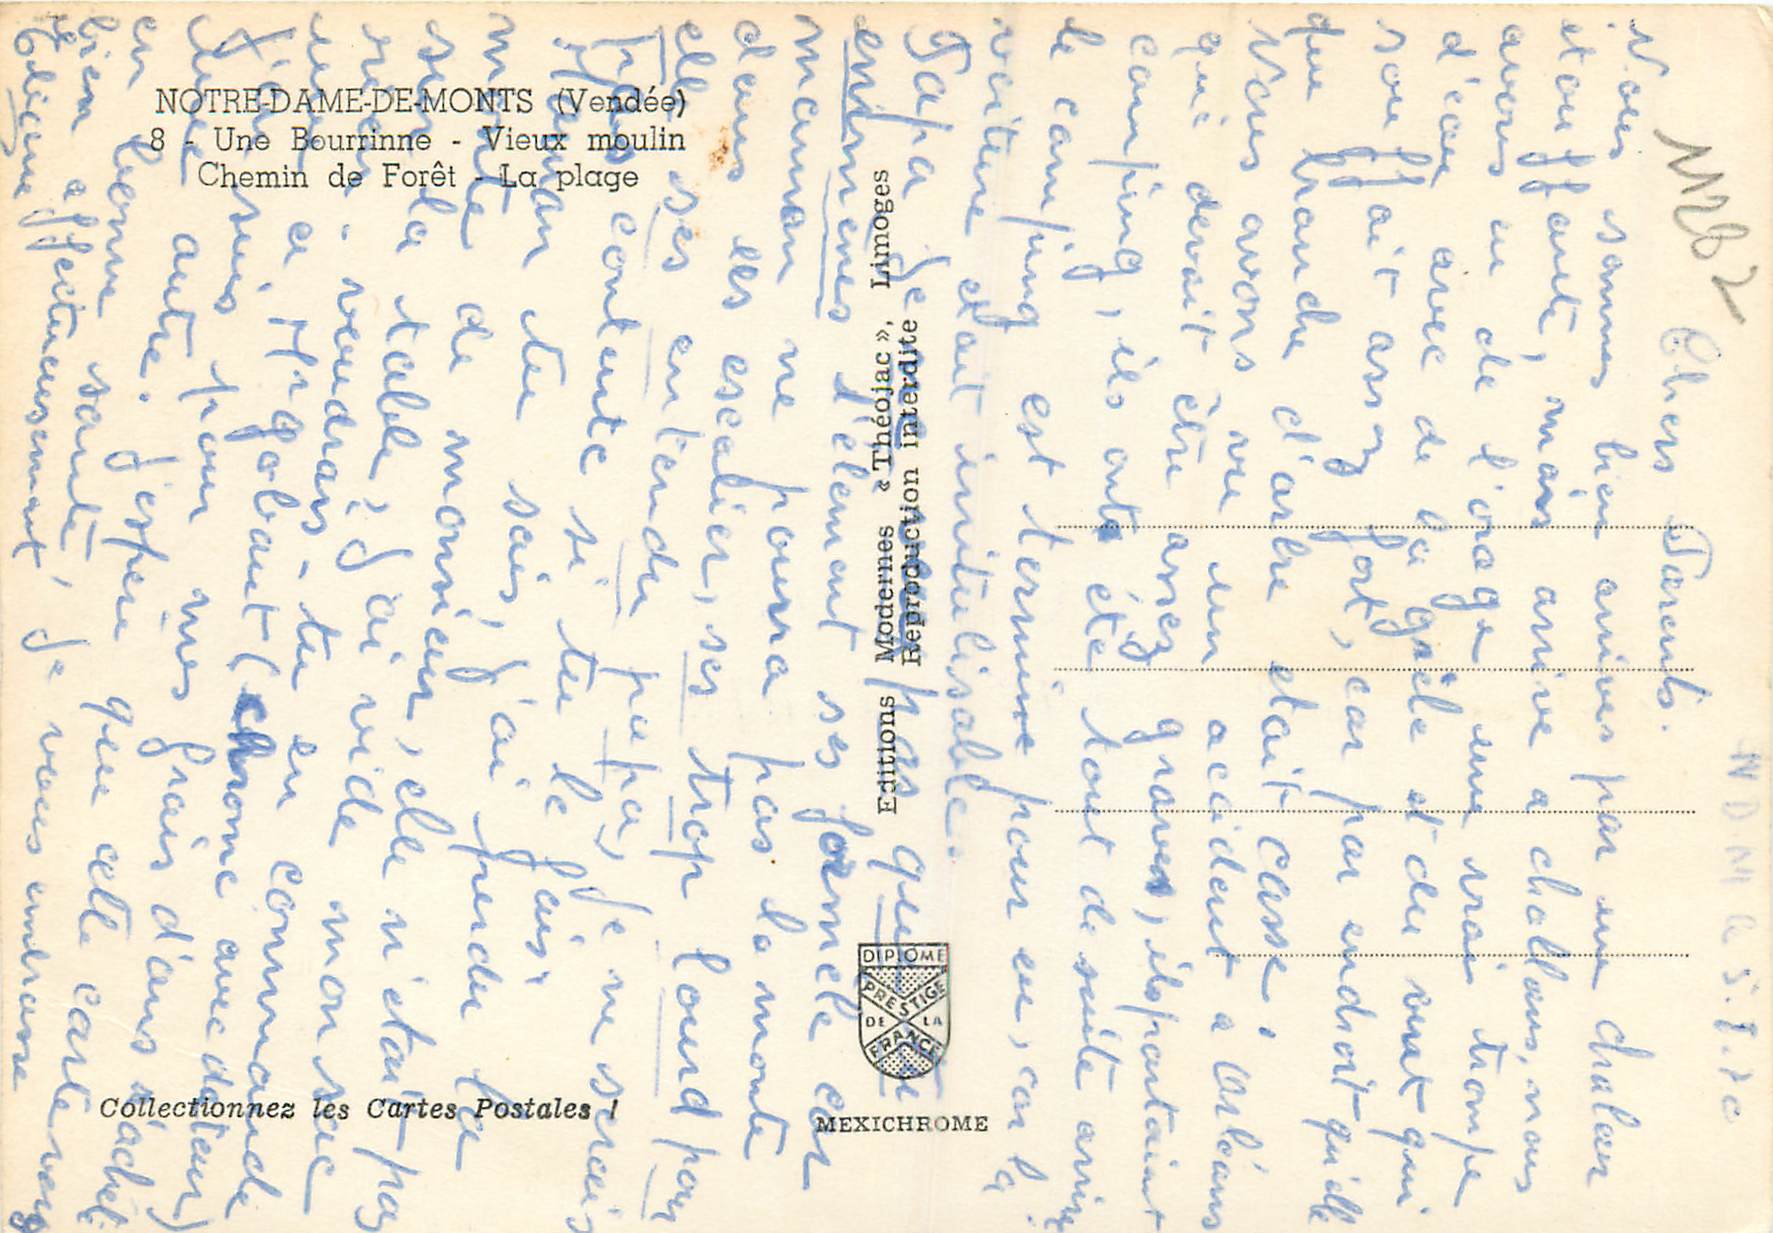 NOTRE-DAME-DE-MONTS (Vendée)
8 - Une Bourrinne - Vieux moulin
Chemin de Forêt - La plage
Editions Modernes « Théojac », Limoges
Reproduction interdite
DIPLOME
PRESTIGE
DE LA
FRANCE
MEXICHROME
Collectionnez les Cartes Postales !
Chers Parents.
Nous sommes bien arrives par une chaleur
etouffante, mais arrive a challans, nous
avons eu de l'orage une vrai trompe
d'eau avec de la grèle et du vent qui
souffait assez fort, car par endroit qu'elle
que branche d'arbre etait casse,
Nous avons vu un accident a Orléans
qui devait être assez graves, ils partaint
camping, ils ont été tout de suite arrive
le camping est termine pour eux, car la
voiture etait inutilisable.
Papa je pas que
emmenes l'element se formele car
maman ne pourra pas la monte
dans les escalier, ses trop lourd pour
elle ses entendu papa, je ne serais
pas contente si tu le fais.
Maman tu sais, j'ai prendu la
montre de monsieur, elle n'etait pas
sur la table, j'ai vide mon sac
rien. voudrais-tu en commande
une a Mr gobaut (chrome avec dateur)
j'en suis pour mes frais d'ans s'achete
une autre. j'espere que cette carte vous
en bonne sante, je vous embrasse
bien affectueusement
Eliane
NDM le 5.8.70